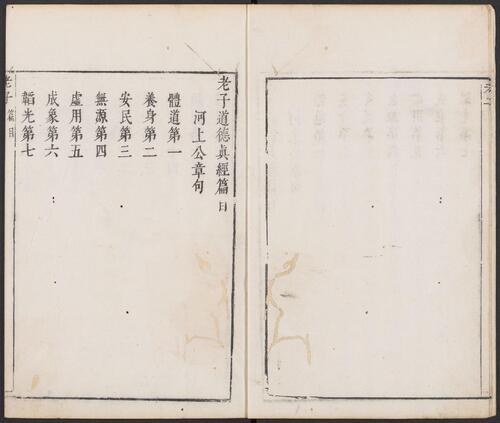 老子道德真經篇目
河上公章句
體道第一
養身第二
安民第三
無源第四
虛用第五
成象第六
韜光第七
老子 篇目